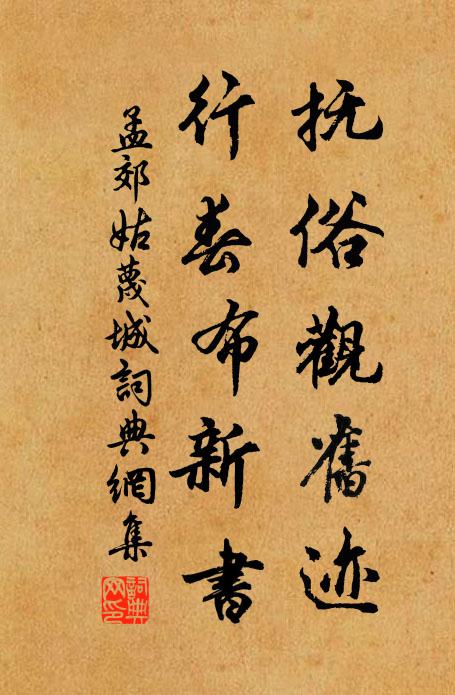 抚俗觀舊迹
行春布新書
孟郊姑蔑城詞典網集
詞典网印